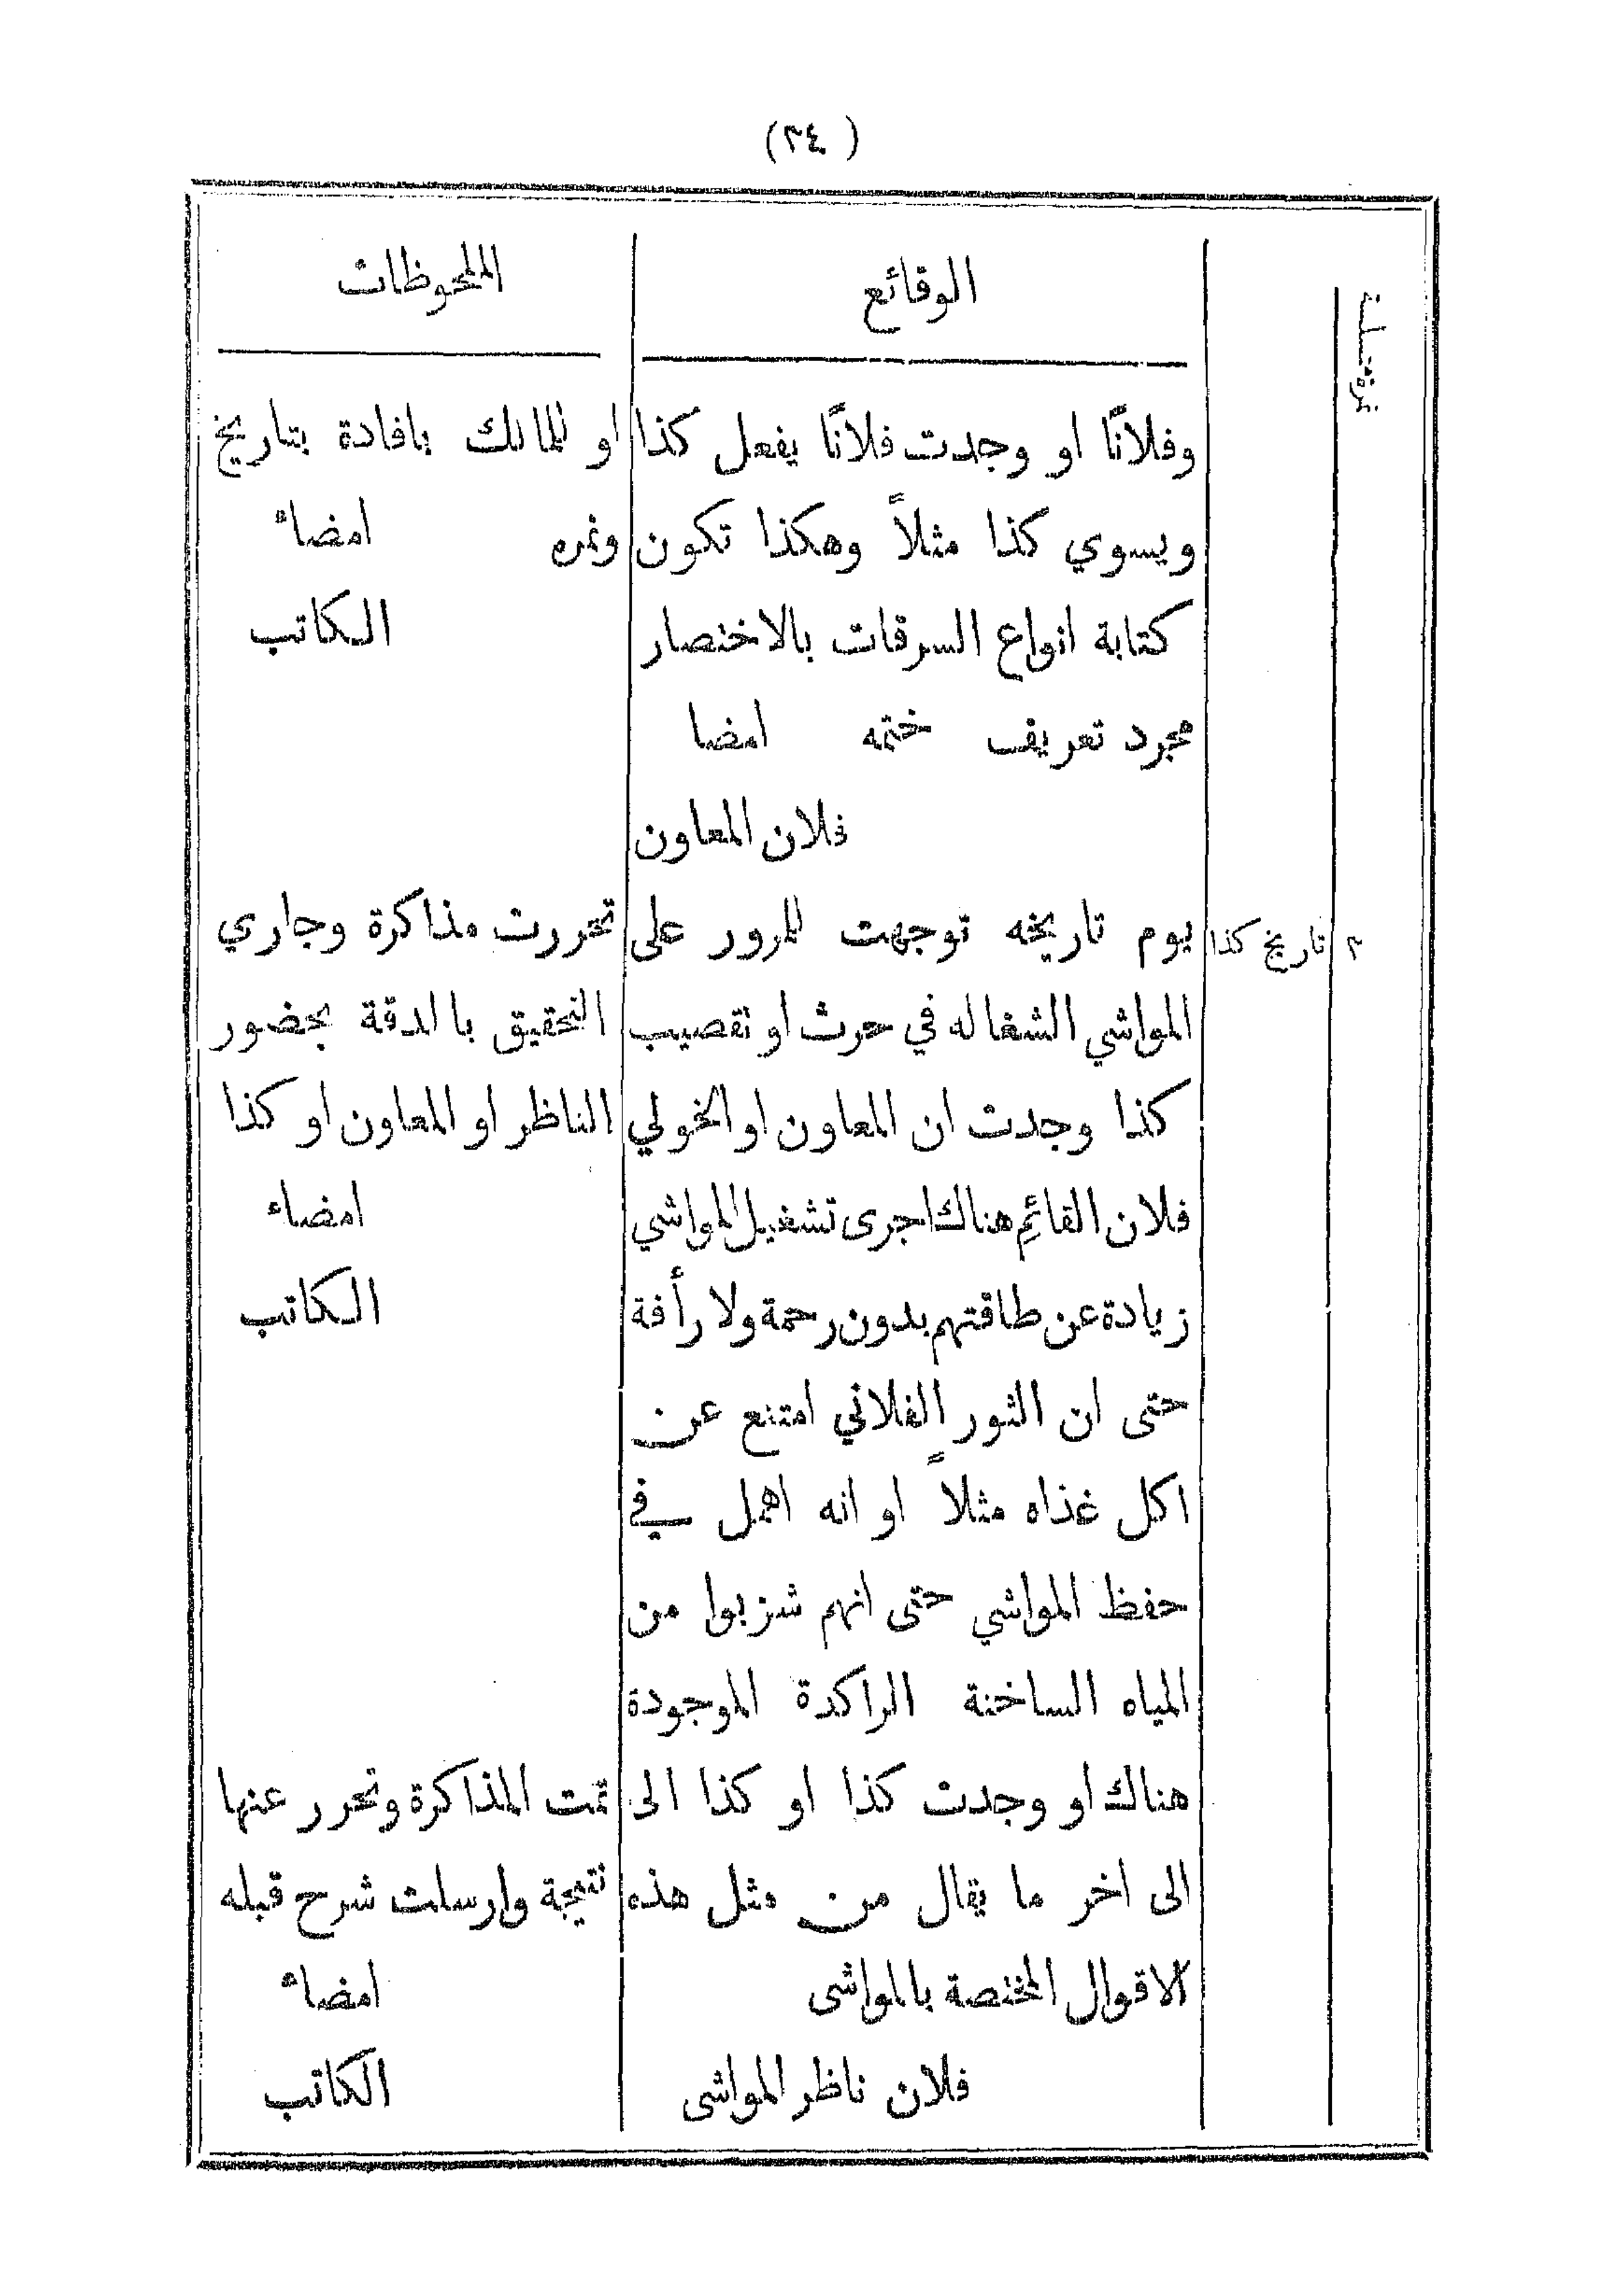 (٢٤)
نمرة مسلسلة
الوقائع
الملحوظات
وفلانًا او وجدت فلانًا يفعل كذا
ويسوي كذا مثلاً وهكذا تكون
كتابة انواع السرقات بالاختصار
مجرد تعريف ختمه امضا
فلان المعاون
او للمالك بافادة بتاريخ
ونمره امضاء
الكاتب
٢
تاريخ كذا
يوم تاريخه توجهت للمرور على
المواشي الشغاله في حرث او تقصيب
كذا وجدت ان المعاون او الخولي
فلان القائم هناك اجرى تشغيل المواشي
زيادة عن طاقتهم بدون رحمة ولا رأفة
حتى ان الثور الفلاني امتنع عن
اكل غذاه مثلاً او انه اهمل في
حفظ المواشي حتى انهم شربوا من
المياه الساخنة الراكدة الموجودة
هناك او وجدت كذا او كذا الى
الى اخر ما يقال من مثل هذه
الاقوال المختصة بالمواشى
فلان ناظر المواشى
تحررت مذاكرة وجاري
التحقيق بالدقة بحضور
الناظر او المعاون او كذا
امضاء
الكاتب
تمت المذاكرة وتحرر عنها
نتيجة وارسلت شرح قبله
امضاء
الكاتب